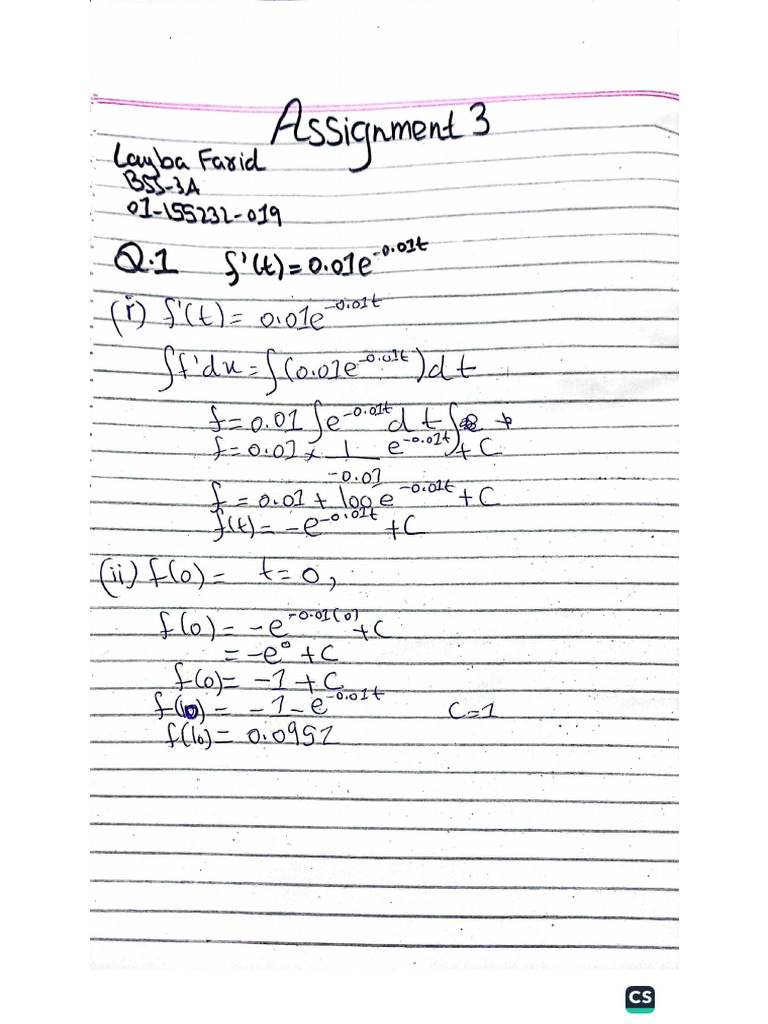 Assignment 3
Layba Farid
BSS-3A
01-155232-019
Q.1 f'(t) = 0.01e^-0.01t
(i) f'(t) = 0.01e^-0.01t
∫f'dx = ∫(0.01e^-0.01t)dt
f = 0.01 ∫e^-0.01t dt
f = 0.01 × 1/-0.01 e^-0.01t + C
f = 0.01 + log e^-0.01t + C
f(t) = -e^-0.01t + C
(ii) f(0) = t = 0,
f(0) = -e^-0.01(0) + C
= -e^0 + C
f(0) = -1 + C
f(10) = -1 - e^-0.01t C=1
f(10) = 0.0951
CS